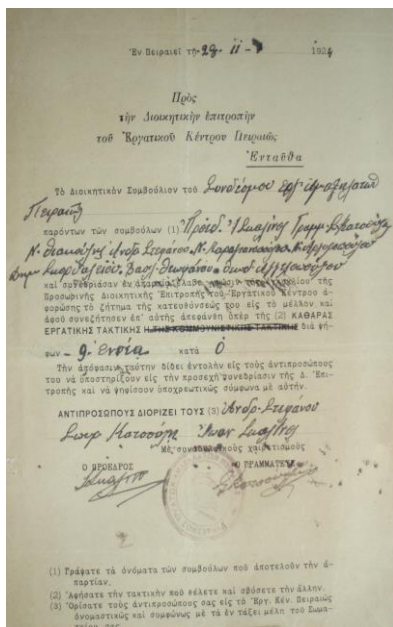 Ἐν Πειραιεῖ τῇ 29 - 11 - 192
Πρὸς
τὴν Διοικητικὴν ἐπιτροπὴν
τοῦ Ἐργατικοῦ Κέντρου Πειραιῶς
Ἐνταῦθα
Τὸ Διοικητικὸν Συμβούλιον τοῦ Συνδέσμου Ἐργ.
Πειραιῶς
παρόντων τῶν συμβούλων (1) Πρόεδ. Ἰ. Σκαλίνης Γραμμ. Σ. Κατσούλη
Ἀνδρ. Στεφάνου, Ν.
καὶ συνεδριάσαν ἐν ἀπαρτίᾳ ἔλαβε τοῦ
Προσωρινῆς Διοικητικῆς Ἐπιτροπῆς τοῦ Ἐργατικοῦ Κέντρου ἀ-
φορώσης τὸ ζήτημα τῆς κατευθύνσεώς του εἰς τὸ μέλλον καὶ
ἀφοῦ συνεζήτησεν ἐπ' αὐτῆς ἀπεφάνθη ὑπὲρ τῆς (2) ΚΑΘΑΡΑΣ
ΕΡΓΑΤΙΚΗΣ ΤΑΚΤΙΚΗΣ Ἢ ΤΗΣ ΚΟΜΜΟΥΝΙΣΤΙΚΗΣ ΤΑΚΤΙΚΗΣ διὰ ψή-
φων 9. Ἐννέα κατὰ 0
Τὴν ἀπόφασιν ταύτην δίδει ἐντολὴν εἰς τοὺς ἀντιπροσώπους
του νὰ ὑποστηρίξουν εἰς τὴν προσεχῆ συνεδρίασιν τῆς Δ. Ἐπι-
τροπῆς καὶ νὰ ψηφίσουν ὑποχρεωτικῶς σύμφωνα μὲ αὐτήν.
ΑΝΤΙΠΡΟΣΩΠΟΥΣ ΔΙΟΡΙΖΕΙ ΤΟΥΣ (3) Ἀνδρ. Στεφάνου
Σωτ. Κατσούλη Ἰωαν. Σκαλίνη
Μὲ συναδελφικοὺς χαιρετισμοὺς
Ο ΠΡΟΕΔΡΟΣ Ο ΓΡΑΜΜΑΤΕΥΣ
(1) Γράφατε τὰ ὀνόματα τῶν συμβούλων ποὺ ἀποτελοῦν τὴν ἀ-
παρτίαν.
(2) Ἀφήσατε τὴν τακτικὴν ποὺ θέλετε καὶ σβύσετε τὴν ἄλλην.
(3) Ὁρίσατε τοὺς ἀντιπροσώπους σας εἰς τὸ Ἐργ. Κέν. Πειραιῶς
ὀνομαστικῶς καὶ συμφώνως μὲ τὰ ἐν τάξει μέλη τοῦ Σωμα-
τείου σας.